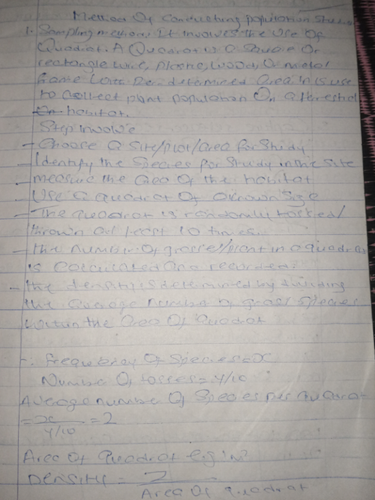 Method Of Conducting population Studies
1. Sampling method: It involves the Use Of
Quadrat. A Quadrat is a Square Or
rectangle wire, wood, Or metal
frame with Pre determined area. It is use
to Collect plant population On a terrestrial
habitat.
Step involve
- Choose a site/plot/area for Study
- Identify the Species for Study in the Site
measure the Area Of the habitat
- Use a quadrat Of a known Size
- The quadrat is randomly tossed/
thrown at least 10 times.
- the number Of grasses/plant in a quadrat
is Calculated and recorded
- the density is determined by dividing
the average number of grass species
within the Area Of Quadrat
frequency Of Species = x
Number Of tosses = y/10
Average number Of Species per Quadrat
= x/y/10 = 2
Area Of Quadrat e.g 1m²
Density = 2
Area Of quadrat